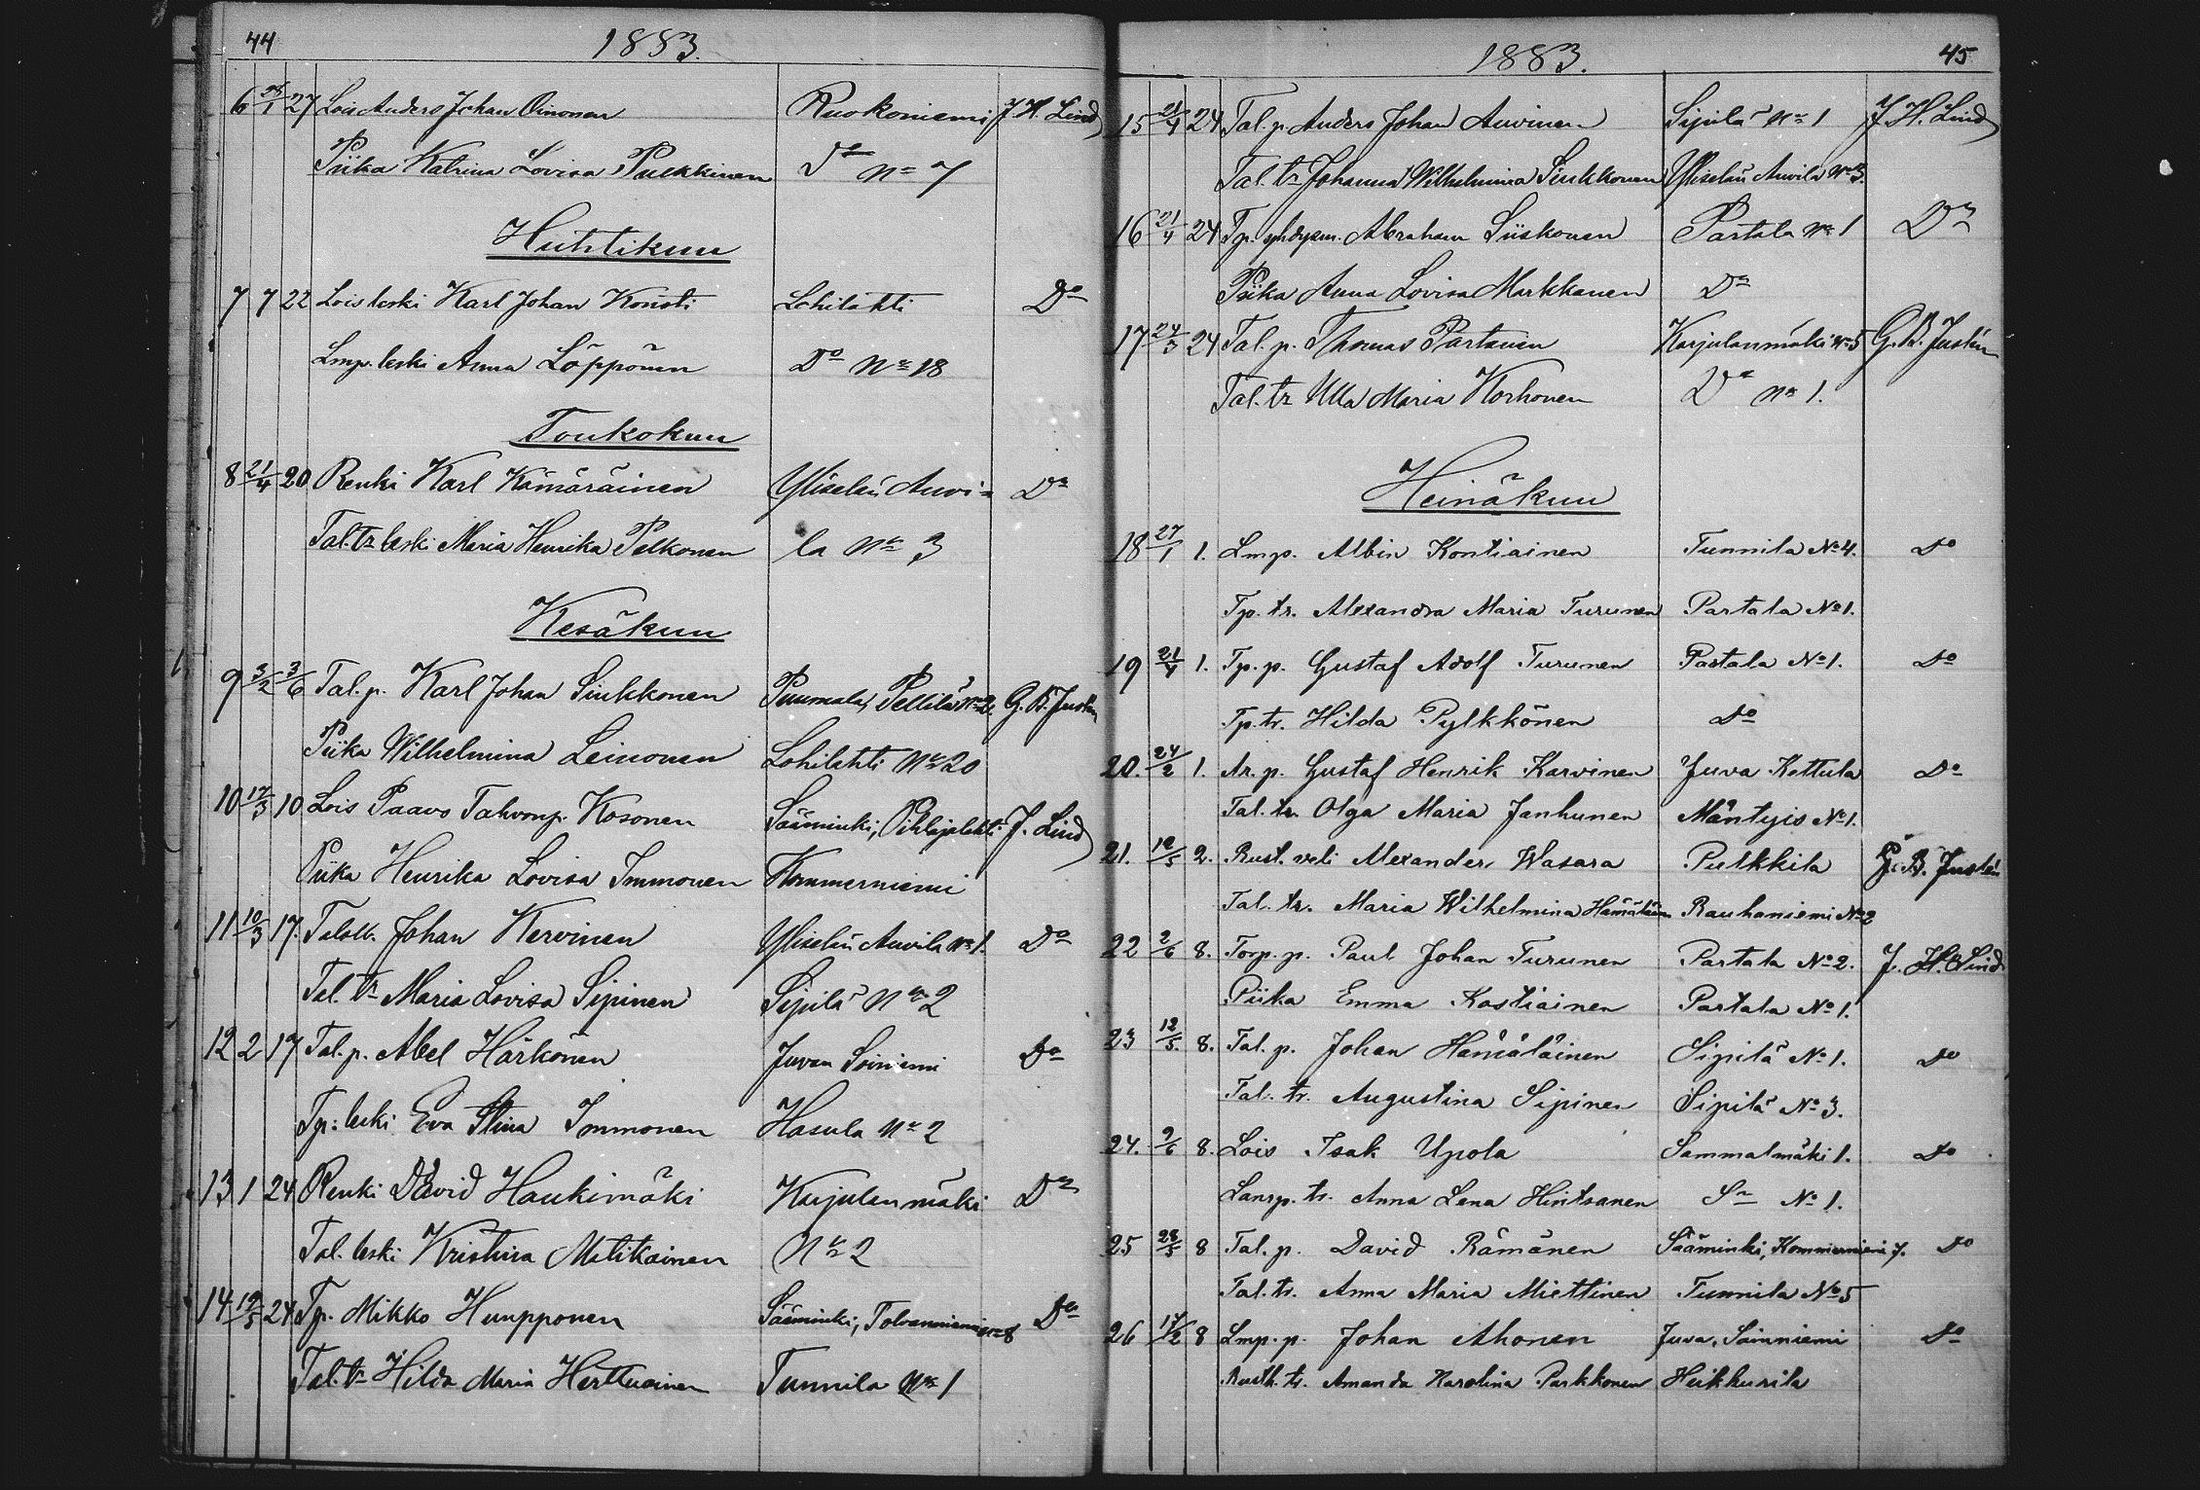 44
1883.
6 25/1 27 Lois Anders Johan Oinonen Ruokoniemi J. H. Lind
Piika Katrina Lovisa Pulkkinen Do No 7
Huhtikuu
7 7 22 Lois leski Karl Johan Konsti Lohilahti Do
Lmp. leski Anna Löppönen Do No 18
Toukokuu
8 21/4 20 Renki Karl Kämäräinen Yliselän Auvi-
Do
Tal. tr leski Maria Henrika Pelkonen la No 3
Kesäkuu
9 3/2 3/6 Tal. p. Karl Johan Sinkkonen Puumala, Pellilä No 2. G. B. Justén
Piika Wilhelmina Leinonen Lohilahti No 20
10 17/3 10 Lois Paavo Tahvonp. Kosonen Sääminki, Pihlajalahti J. Lind
Piika Henrika Lovisa Immonen Kommerniemi
11 10/3 17. Taloll. Johan Kervinen Yliselän Auvila No 1. Do
Tal. tr Maria Lovisa Sipinen Sipilä No 2
12 2 17 Tal. p. Abel Härkönen Juvan Soiniemi Do
Tp. leski Eva Stina Immonen Hasula No 2
13 1 24 Renki David Haukimäki Karjulanmäki Do
Tal. leski Kristina Matikainen No 2
14 19/5 24 Tp. Mikko Hunpponen Sääminki, Tolvanniemi No 8 Do
Tal. tr Hilda Maria Herttuainen Tunnila No 1
1883.
45
15 21/4 24 Tal. p. Anders Johan Auvinen Sipilä No 1 J. H. Lind
Tal. tr Johanna Wilhelmina Sinkkonen Yliselän Auvila No 3.
16 21/4 24 Tp. yhdysm. Abraham Siiskonen Partala No 1 Do
Piika Anna Lovisa Markkanen Do
17 24/3 24 Tal. p. Thomas Partanen Karjulanmäki No 5 G. B. Justén
Tal. tr Ulla Maria Korhonen Do No 1.
Heinäkuu
18 27/1 1. Lmp. Albin Kontiainen Tunnila No 4. Do
Tp. tr. Alexandra Maria Turunen Partala No 1.
19 21/4 1. Tp. p. Gustaf Adolf Turunen Partala No 1. Do
Tp. tr. Hilda Pylkkönen Do
20. 24/2 1. Ar. p. Gustaf Henrik Karvinen Juva Kettula Do
Tal. tr. Olga Maria Janhunen Mäntyis No 1.
21. 12/5 2. Rust. veli Alexander Wasara Pulkkila G. B. Justén
Tal. tr. Maria Wilhelmina Hämäläinen Rauhaniemi No 2
22 2/6 8. Torp. p. Paul Johan Turunen Partala No 2. J. H. Lind
Piika Emma Kostiainen Partala No 1.
23 12/5. 8. Tal. p. Johan Hämäläinen Sipilä No 1. Do
Tal. tr. Augustina Sipinen Sipilä No 3.
24. 9/6 8. Lois Isak Upola Sammalmäki 1. Do
Lansp. tr. Anna Lena Hintsanen Sn No 1.
25 28/5 8 Tal. p. David Rämänen Sääminki, Kommerniemi 7. Do
Tal. tr. Anna Maria Miettinen Tunnila No 5
26 17/2 8 Lmp. p. Johan Ahonen Juva, Soinniemi Do
Rusth. tr. Amanda Karolina Parkkonen Heikkurila